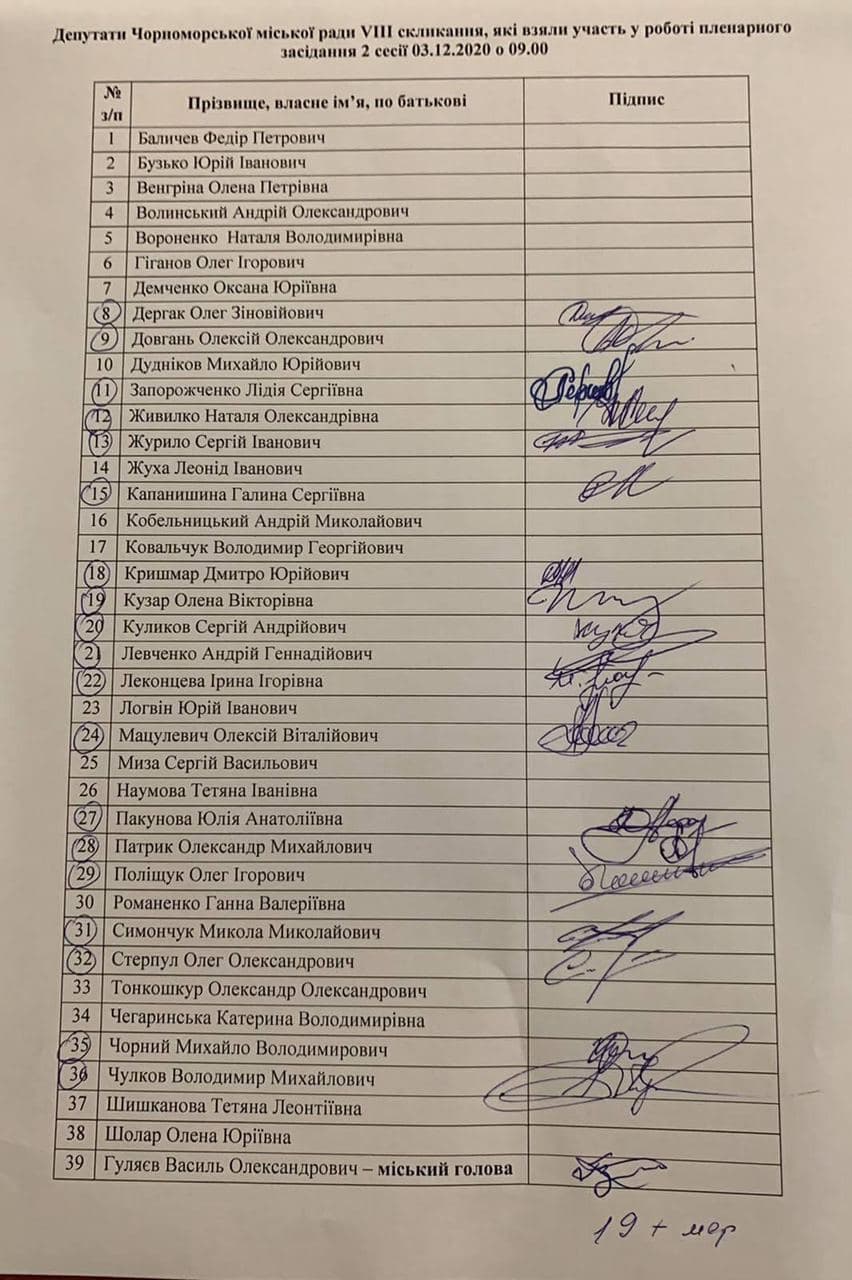 Депутати Чорноморської міської ради VIII скликання, які взяли участь у роботі пленарного
засідання 2 сесії 03.12.2020 о 09.00
№ з/п Прізвище, власне ім’я, по батькові Підпис
1 Баличев Федір Петрович
2 Бузько Юрій Іванович
3 Венгріна Олена Петрівна
4 Волинський Андрій Олександрович
5 Вороненко Наталя Володимирівна
6 Гіганов Олег Ігорович
7 Демченко Оксана Юріївна
8 Дергак Олег Зіновійович
9 Довгань Олексій Олександрович
10 Дудніков Михайло Юрійович
11 Запорожченко Лідія Сергіївна
12 Живилко Наталя Олександрівна
13 Журило Сергій Іванович
14 Жуха Леонід Іванович
15 Капанишина Галина Сергіївна
16 Кобельницький Андрій Миколайович
17 Ковальчук Володимир Георгійович
18 Кришмар Дмитро Юрійович
19 Кузар Олена Вікторівна
20 Куликов Сергій Андрійович
21 Левченко Андрій Геннадійович
22 Леконцева Ірина Ігорівна
23 Логвін Юрій Іванович
24 Мацулевич Олексій Віталійович
25 Миза Сергій Васильович
26 Наумова Тетяна Іванівна
27 Пакунова Юлія Анатоліївна
28 Патрик Олександр Михайлович
29 Поліщук Олег Ігорович
30 Романенко Ганна Валеріївна
31 Симончук Микола Миколайович
32 Стерпул Олег Олександрович
33 Тонкошкур Олександр Олександрович
34 Чегаринська Катерина Володимирівна
35 Чорний Михайло Володимирович
36 Чулков Володимир Михайлович
37 Шишканова Тетяна Леонтіївна
38 Шолар Олена Юріївна
39 Гуляєв Василь Олександрович – міський голова
19 + мер